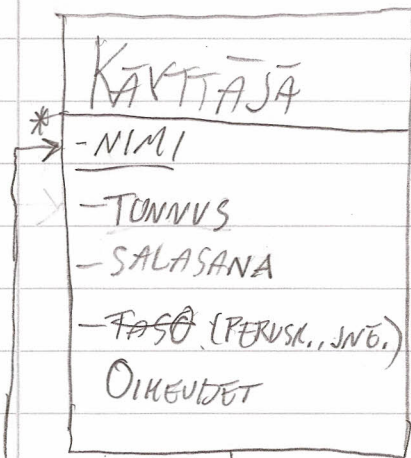 KÄYTTÄJÄ
*
-NIMI
-TUNNUS
-SALASANA
-TASO (PERUSK., JNE.)
OIKEUDET